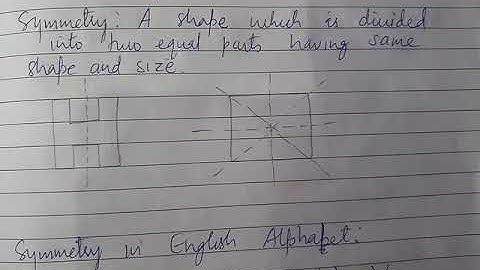 Symmetry: A shape which is divided
into two equal parts having same
shape and size.
Symmetry in English Alphabet: